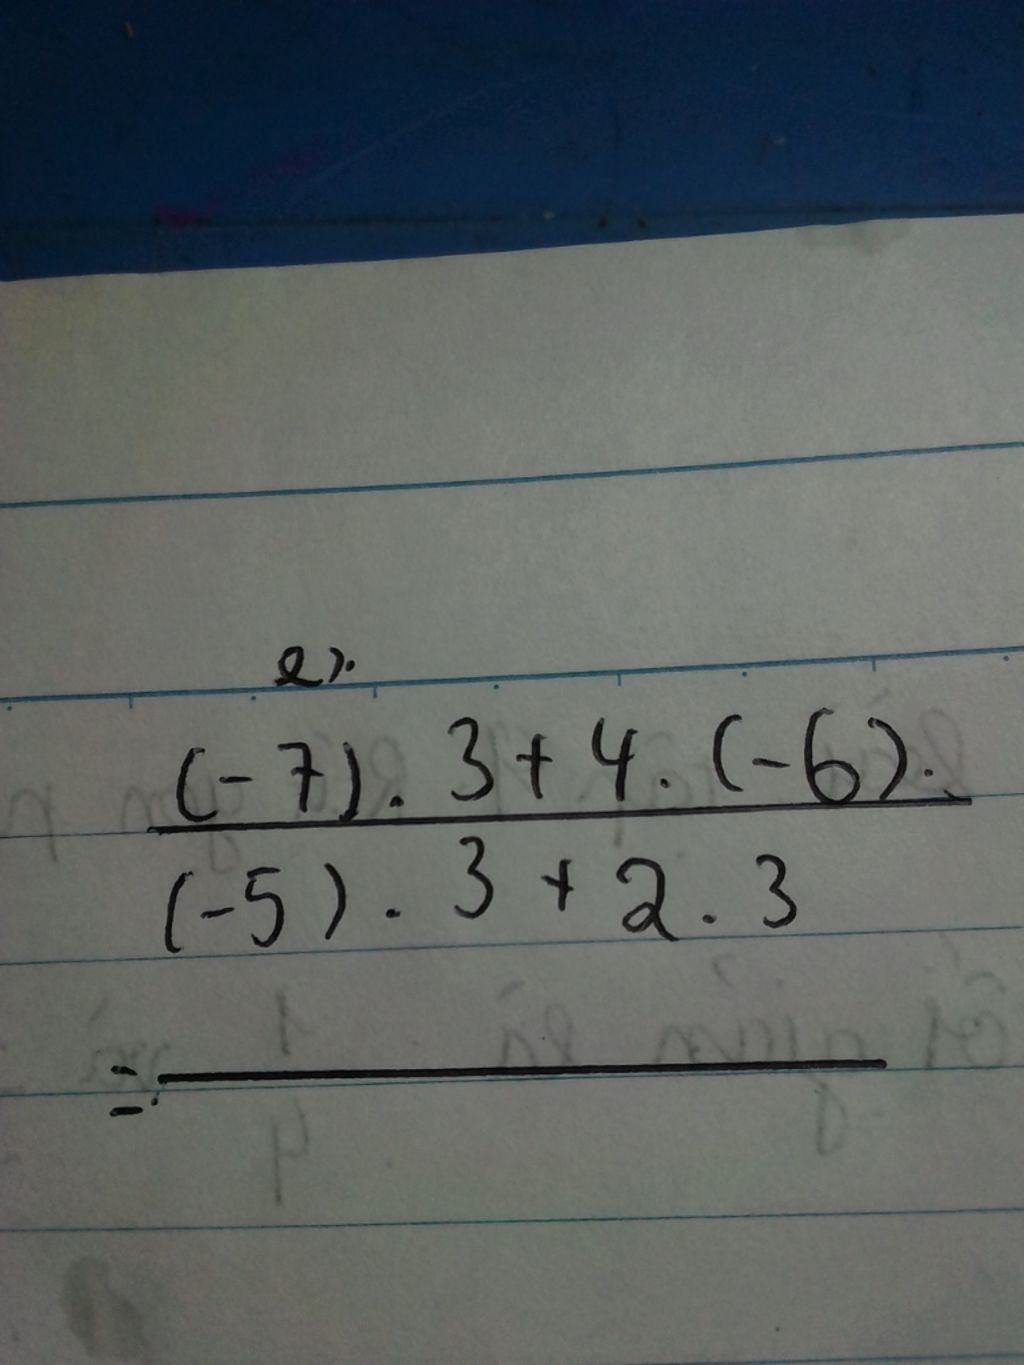 e).
(-7). 3 + 4. (-6).
(-5). 3 + 2. 3
=